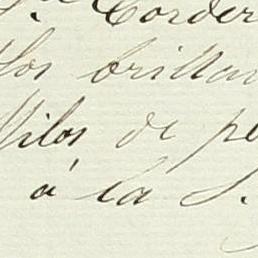 Corder
los brillan
Hilos de pe
á la S.